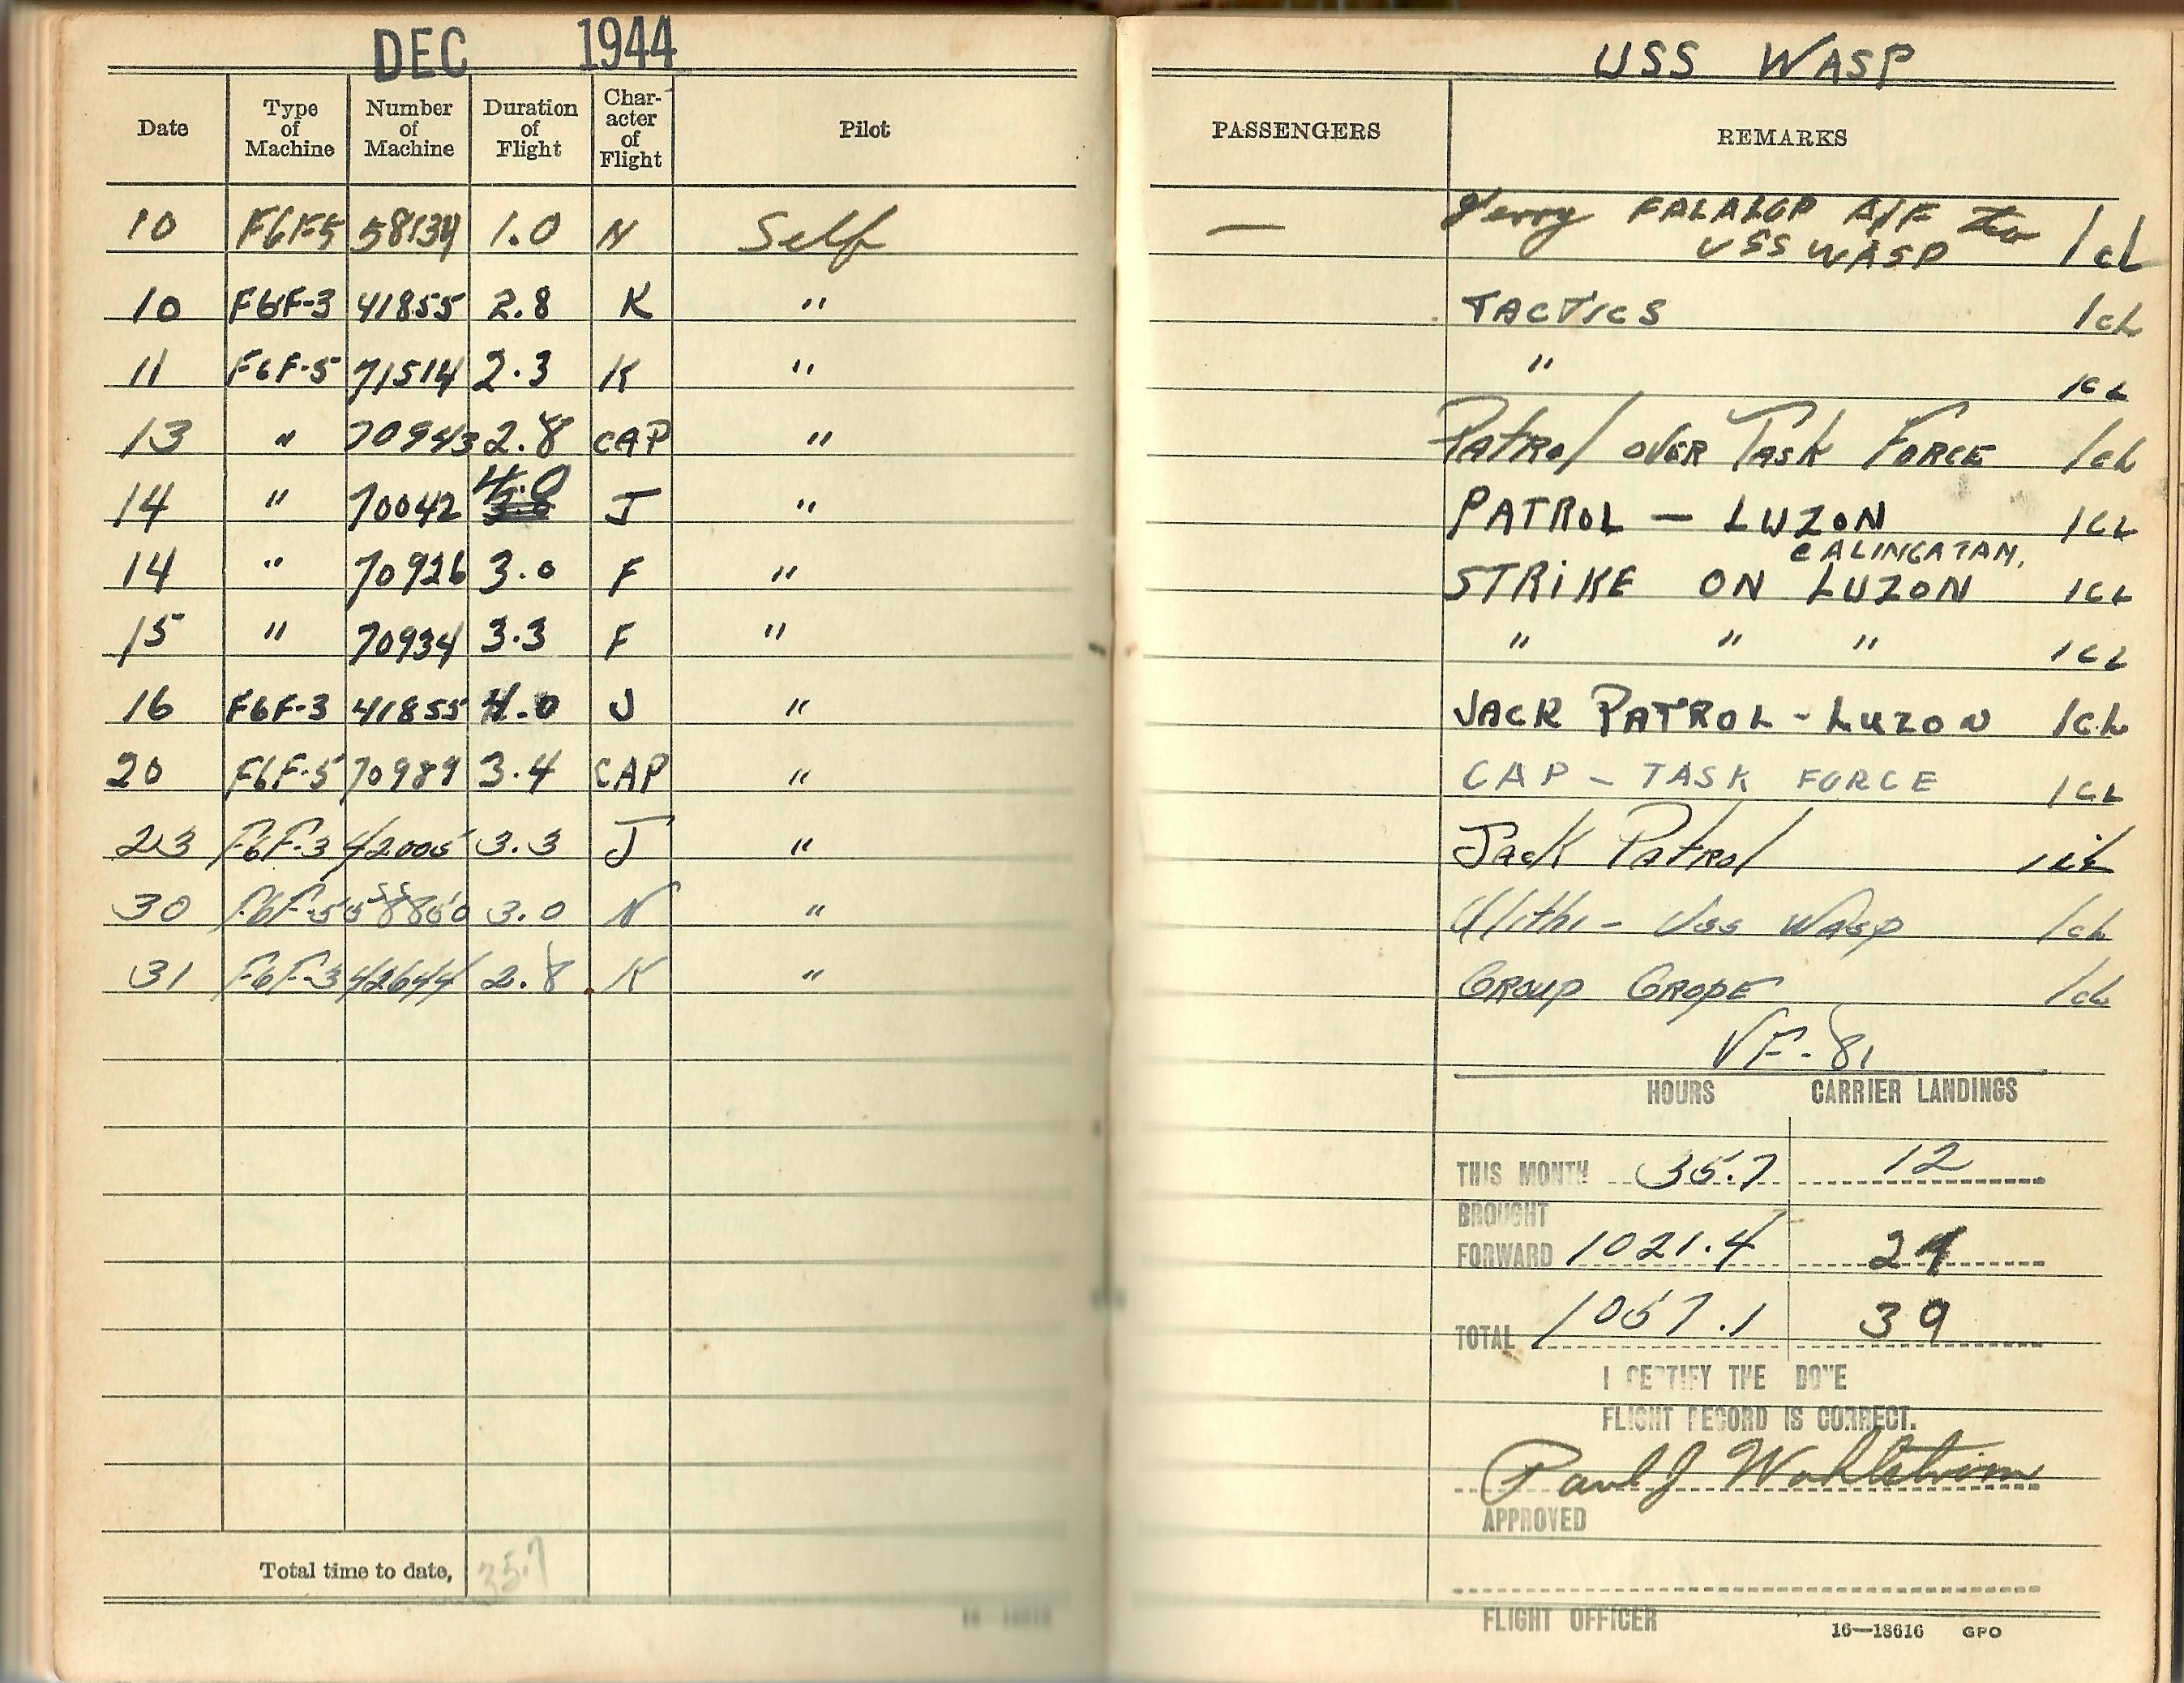 DEC 1944
USS WASP
Date Type of Machine Number of Machine Duration of Flight Char-acter of Flight Pilot PASSENGERS REMARKS
10 F6F-5 58134 1.0 N Self — Ferry FALALOP A/F to 1cL
USS WASP
10 F6F-3 41855 2.8 K " TACTICS 1cL
11 F6F-5 71514 2.3 K " " 1CL
13 " 70943 2.8 CAP " Patrol over Task Force 1cL
14 " 70042 4.0 J " PATROL — LUZON 1CL
14 " 70926 3.0 F " STRIKE ON LUZON 1CL
15 " 70934 3.3 F " " " " 1CL
16 F6F-3 41855 4.0 J " JACK PATROL - LUZON 1CL
20 F6F-5 70989 3.4 CAP " CAP - TASK FORCE 1CL
23 F6F-3 42005 3.3 J " Jack Patrol 1cL
30 F6F-5 3.0 N " Ulithi - USS WASP 1cL
31 F6F-3 42644 2.8 K " GROUP GROPE 1cL
VF-81
HOURS CARRIER LANDINGS
THIS MONTH 35.7 12
BROUGHT
FORWARD 1021.4
TOTAL 1057.1 39
I CERTIFY THE BOVE
FLIGHT RECORD IS CORRECT.
Paul J Wahlstrom
APPROVED
Total time to date, 35.7
FLIGHT OFFICER 16—18616 GPO